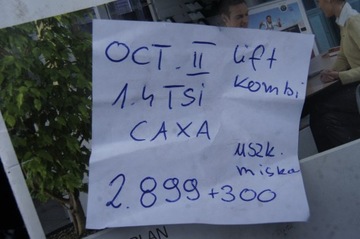 OCT. II lift
kombi
1.4 TSi
CAXA
uszk.
miska
2.899 + 300
PLAN